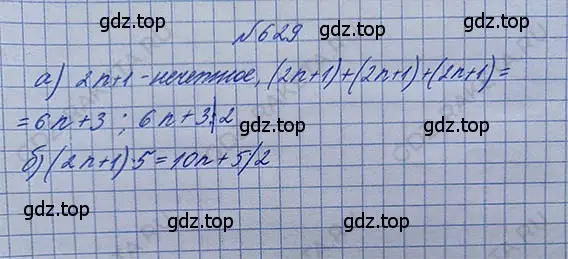 №629
а) 2n+1 - нечетное, (2n+1)+(2n+1)+(2n+1)=
=6n+3 ; 6n+3⫮2
б) (2n+1)·5=10n+5⫮2
gdz.top
gdz.top
gdz.top
gdz.top
gdz.top
gdz.top
gdz.top
gdz.top